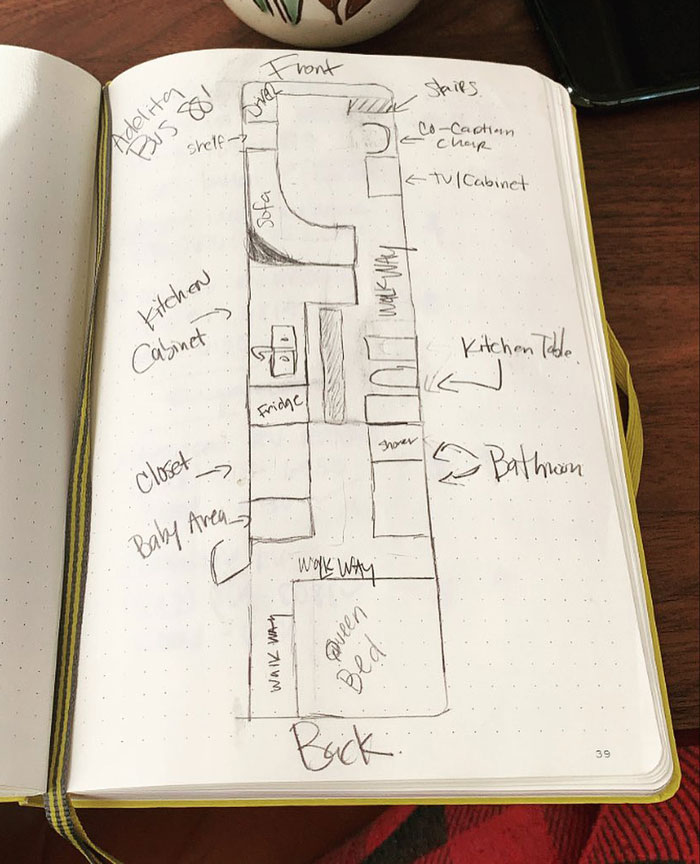 Front
Adelita
Bus 88!
Driver
Stairs
shelf
Co-Caption
chair
TV/Cabinet
Sofa
WALKWAY
Kitchen
Cabinet
Kitchen Table.
Fridge
shower
Closet
Bathroom
Baby Area
WALKWAY
WALKWAY
Queen
Bed
Back.
39